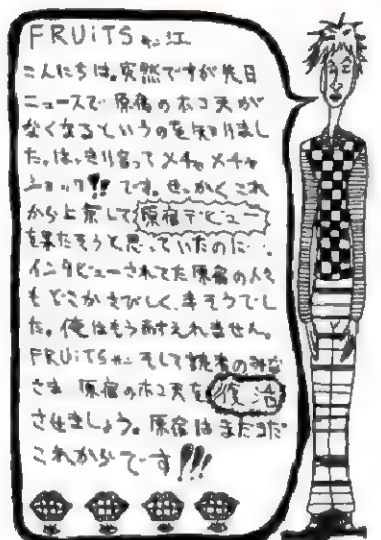 FRUiTSさんに
こんにちは。突然ですが先日
ニュースで原宿のホコ天が
なくなるというのを知りまし
た。はっきり言ってメチャメチャ
ショック!!です。せっかくこれ
から上京して原宿デビュー
を果たそうと思っていたのに…
インタビューされてた原宿の人々
もどこかさびしく、辛そうでし
た。俺はもうあすえれません。
FRUiTSさん そして読者のみな
さま 原宿のホコ天を復活
させましょう。原宿はまだまだ
これからです!!!